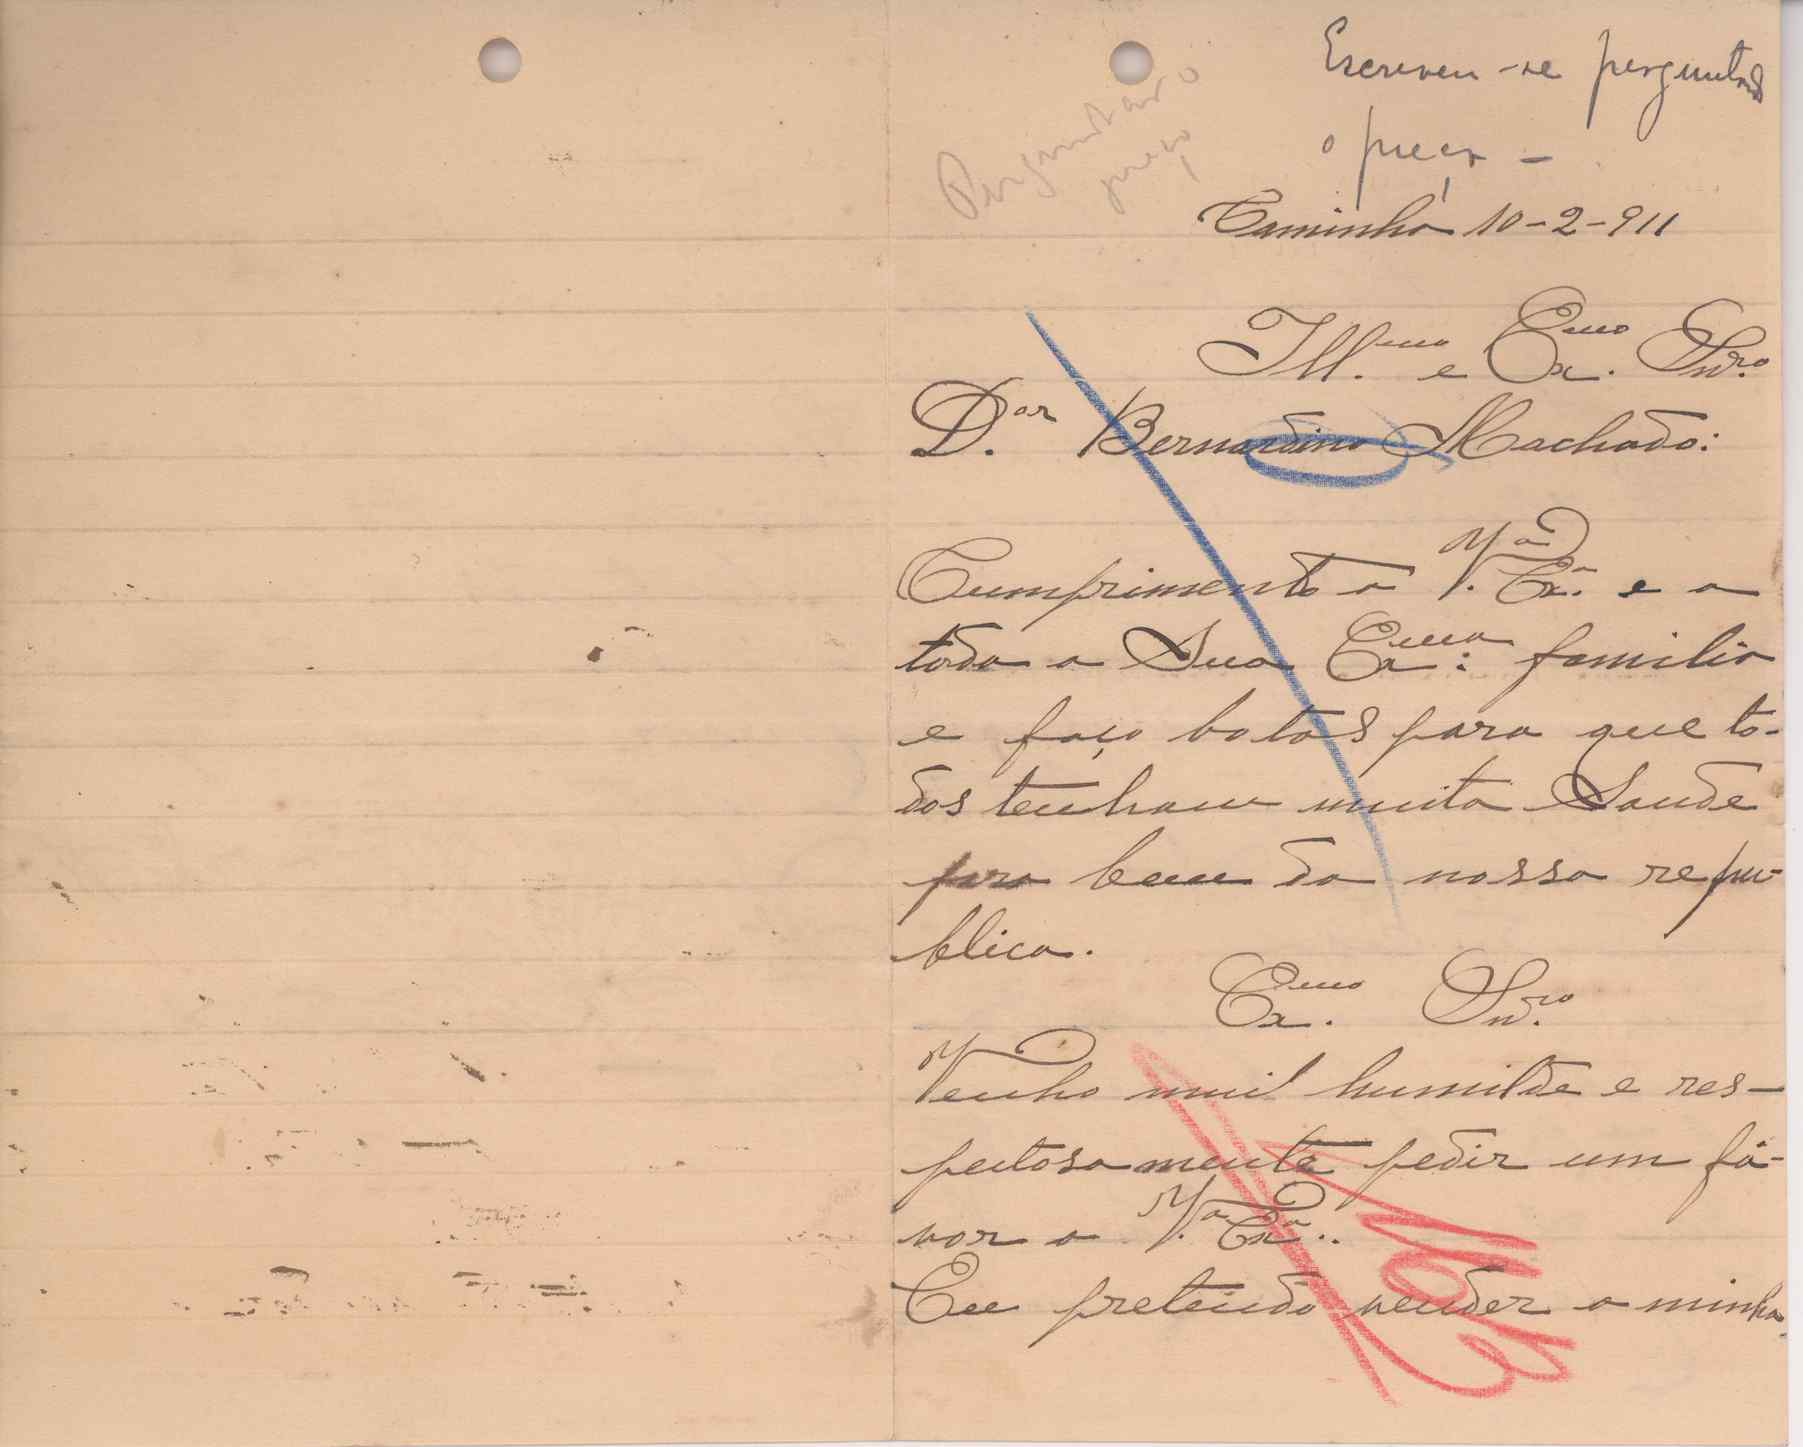 Escreveu-se perguntando
o preço -
Perguntar o
preço
Caminha 10-2-911
Ill.mo e Ex.mo Snr.o
D.or Bernardino Machado:
Cumprimento a V.a Ex.a e a
toda a Sua Ex.ma familia
e faço botos para que to-
dos tenham muita Saude
para bem da nossa repu-
blica.
Ex.mo Snr.o
Venho mui humilde e res-
peitosamente pedir um fa-
vor a V.a Ex.a.
Eu pretendo vender a minha